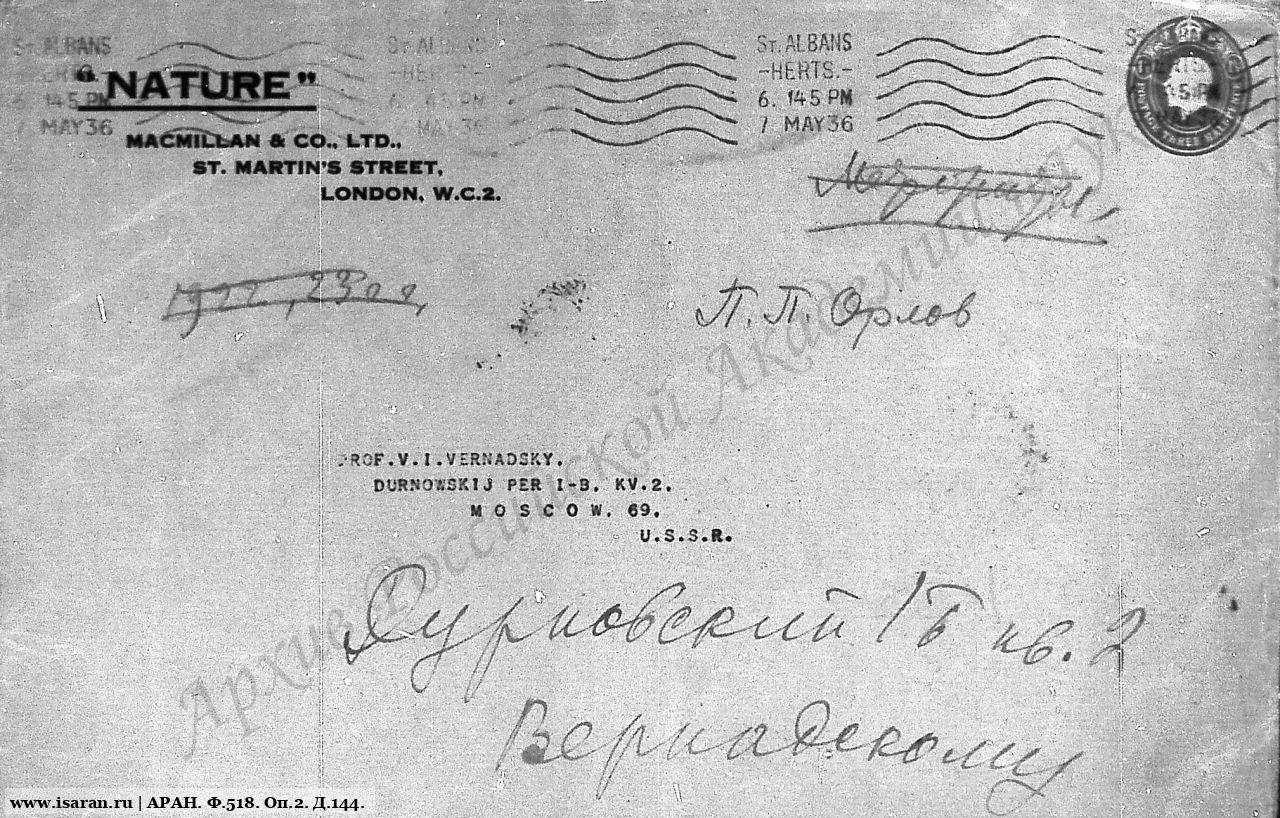 ST. ALBANS
-HERTS.-
6. 145 PM
7 MAY 36
"NATURE"
MACMILLAN & CO., LTD.,
ST. MARTIN'S STREET,
LONDON, W.C.2.
1922, 23
П. П. Орлов
PROF.V.I.VERNADSKY.
DURNOWSKIJ PER I-B. KV.2.
MOSCOW. 69.
U.S.S.R.
Дурновский 1Б кв. 2
Вернадскому
Архив Российской Академии наук
www.isaran.ru | АРАН. Ф.518. Оп.2. Д.144.